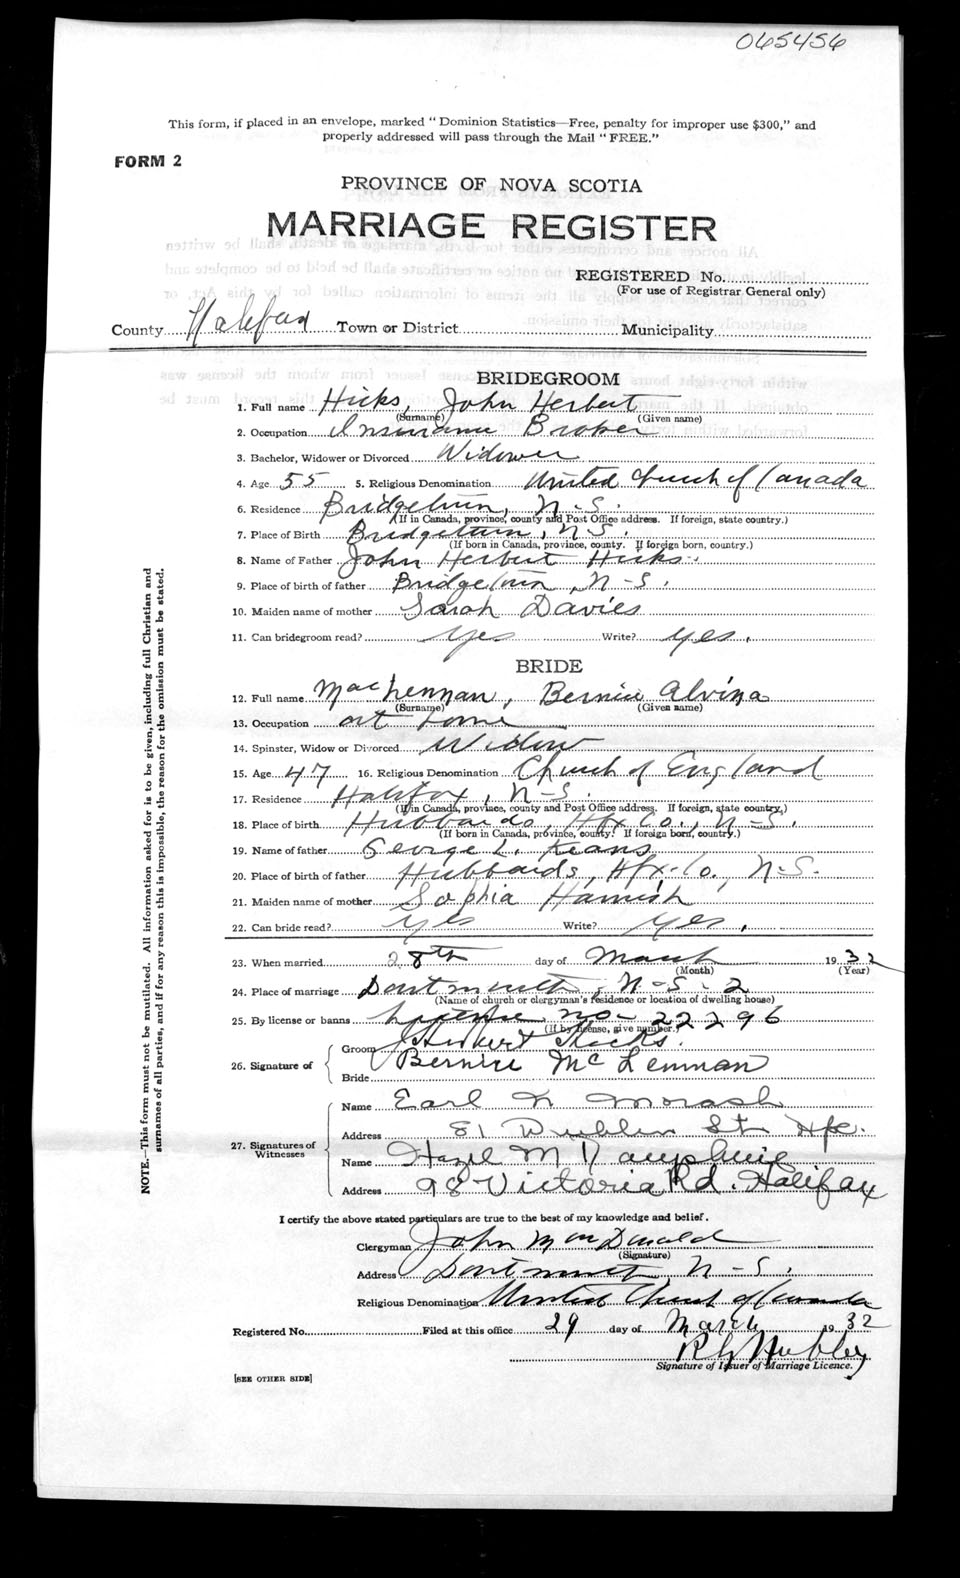 065456
This form, if placed in an envelope, marked "Dominion Statistics—Free, penalty for improper use $300," and
properly addressed will pass through the Mail "FREE."
FORM 2
PROVINCE OF NOVA SCOTIA
MARRIAGE REGISTER
REGISTERED No.
(For use of Registrar General only)
County Halifax Town or District Municipality
BRIDEGROOM
1. Full name Hicks, John Herbert
(Surname) (Given name)
2. Occupation Insurance Broker
3. Bachelor, Widower or Divorced Widower
4. Age 55 5. Religious Denomination United Church of Canada
6. Residence Bridgetown, N-S.
(If in Canada, province, county and Post Office address. If foreign, state country.)
7. Place of Birth Bridgetown, N.S.
(If born in Canada, province, county. If foreign born, country.)
8. Name of Father John Herbert Hicks
9. Place of birth of father Bridgetown, N-S.
10. Maiden name of mother Sarah Davies
11. Can bridegroom read? yes Write? yes.
BRIDE
12. Full name MacLennan, Bernice Alvina
(Surname) (Given name)
13. Occupation at home
14. Spinster, Widow or Divorced Widow
15. Age 47 16. Religious Denomination Church of England
17. Residence Halifax, N-S.
(If in Canada, province, county and Post Office address. If foreign, state country.)
18. Place of birth Hubbards, Hfx Co., N-S.
(If born in Canada, province, county. If foreign born, country.)
19. Name of father George L. Keans
20. Place of birth of father Hubbards, Hfx-Co., N-S.
21. Maiden name of mother Sophia Harnish
22. Can bride read? yes Write? yes.
23. When married 28th day of March 1932
(Month) (Year)
24. Place of marriage Dartmouth, N-S.
(Name of church or clergyman's residence or location of dwelling house)
25. By license or banns License no- 22296
(If by license, give number.)
26. Signature of
Groom J Herbert Hicks.
Bride Bernice McLennan
27. Signatures of Witnesses
Name Earl Morash
Address 81 Dublin St. Hfx.
Name Hazel M
Address 98 Victoria Rd. Halifax
I certify the above stated particulars are true to the best of my knowledge and belief.
Clergyman John MacDonald
(Signature)
Address Dartmouth, N-S.
Religious Denomination United Church of Canada
Registered No. Filed at this office 29 day of March 1932
Hubley
Signature of Issuer of Marriage Licence.
[SEE OTHER SIDE]
NOTE.—This form must not be mutilated. All information asked for is to be given, including full Christian and
surnames of all parties, and if for any reason this is impossible, the reason for the omission must be stated.